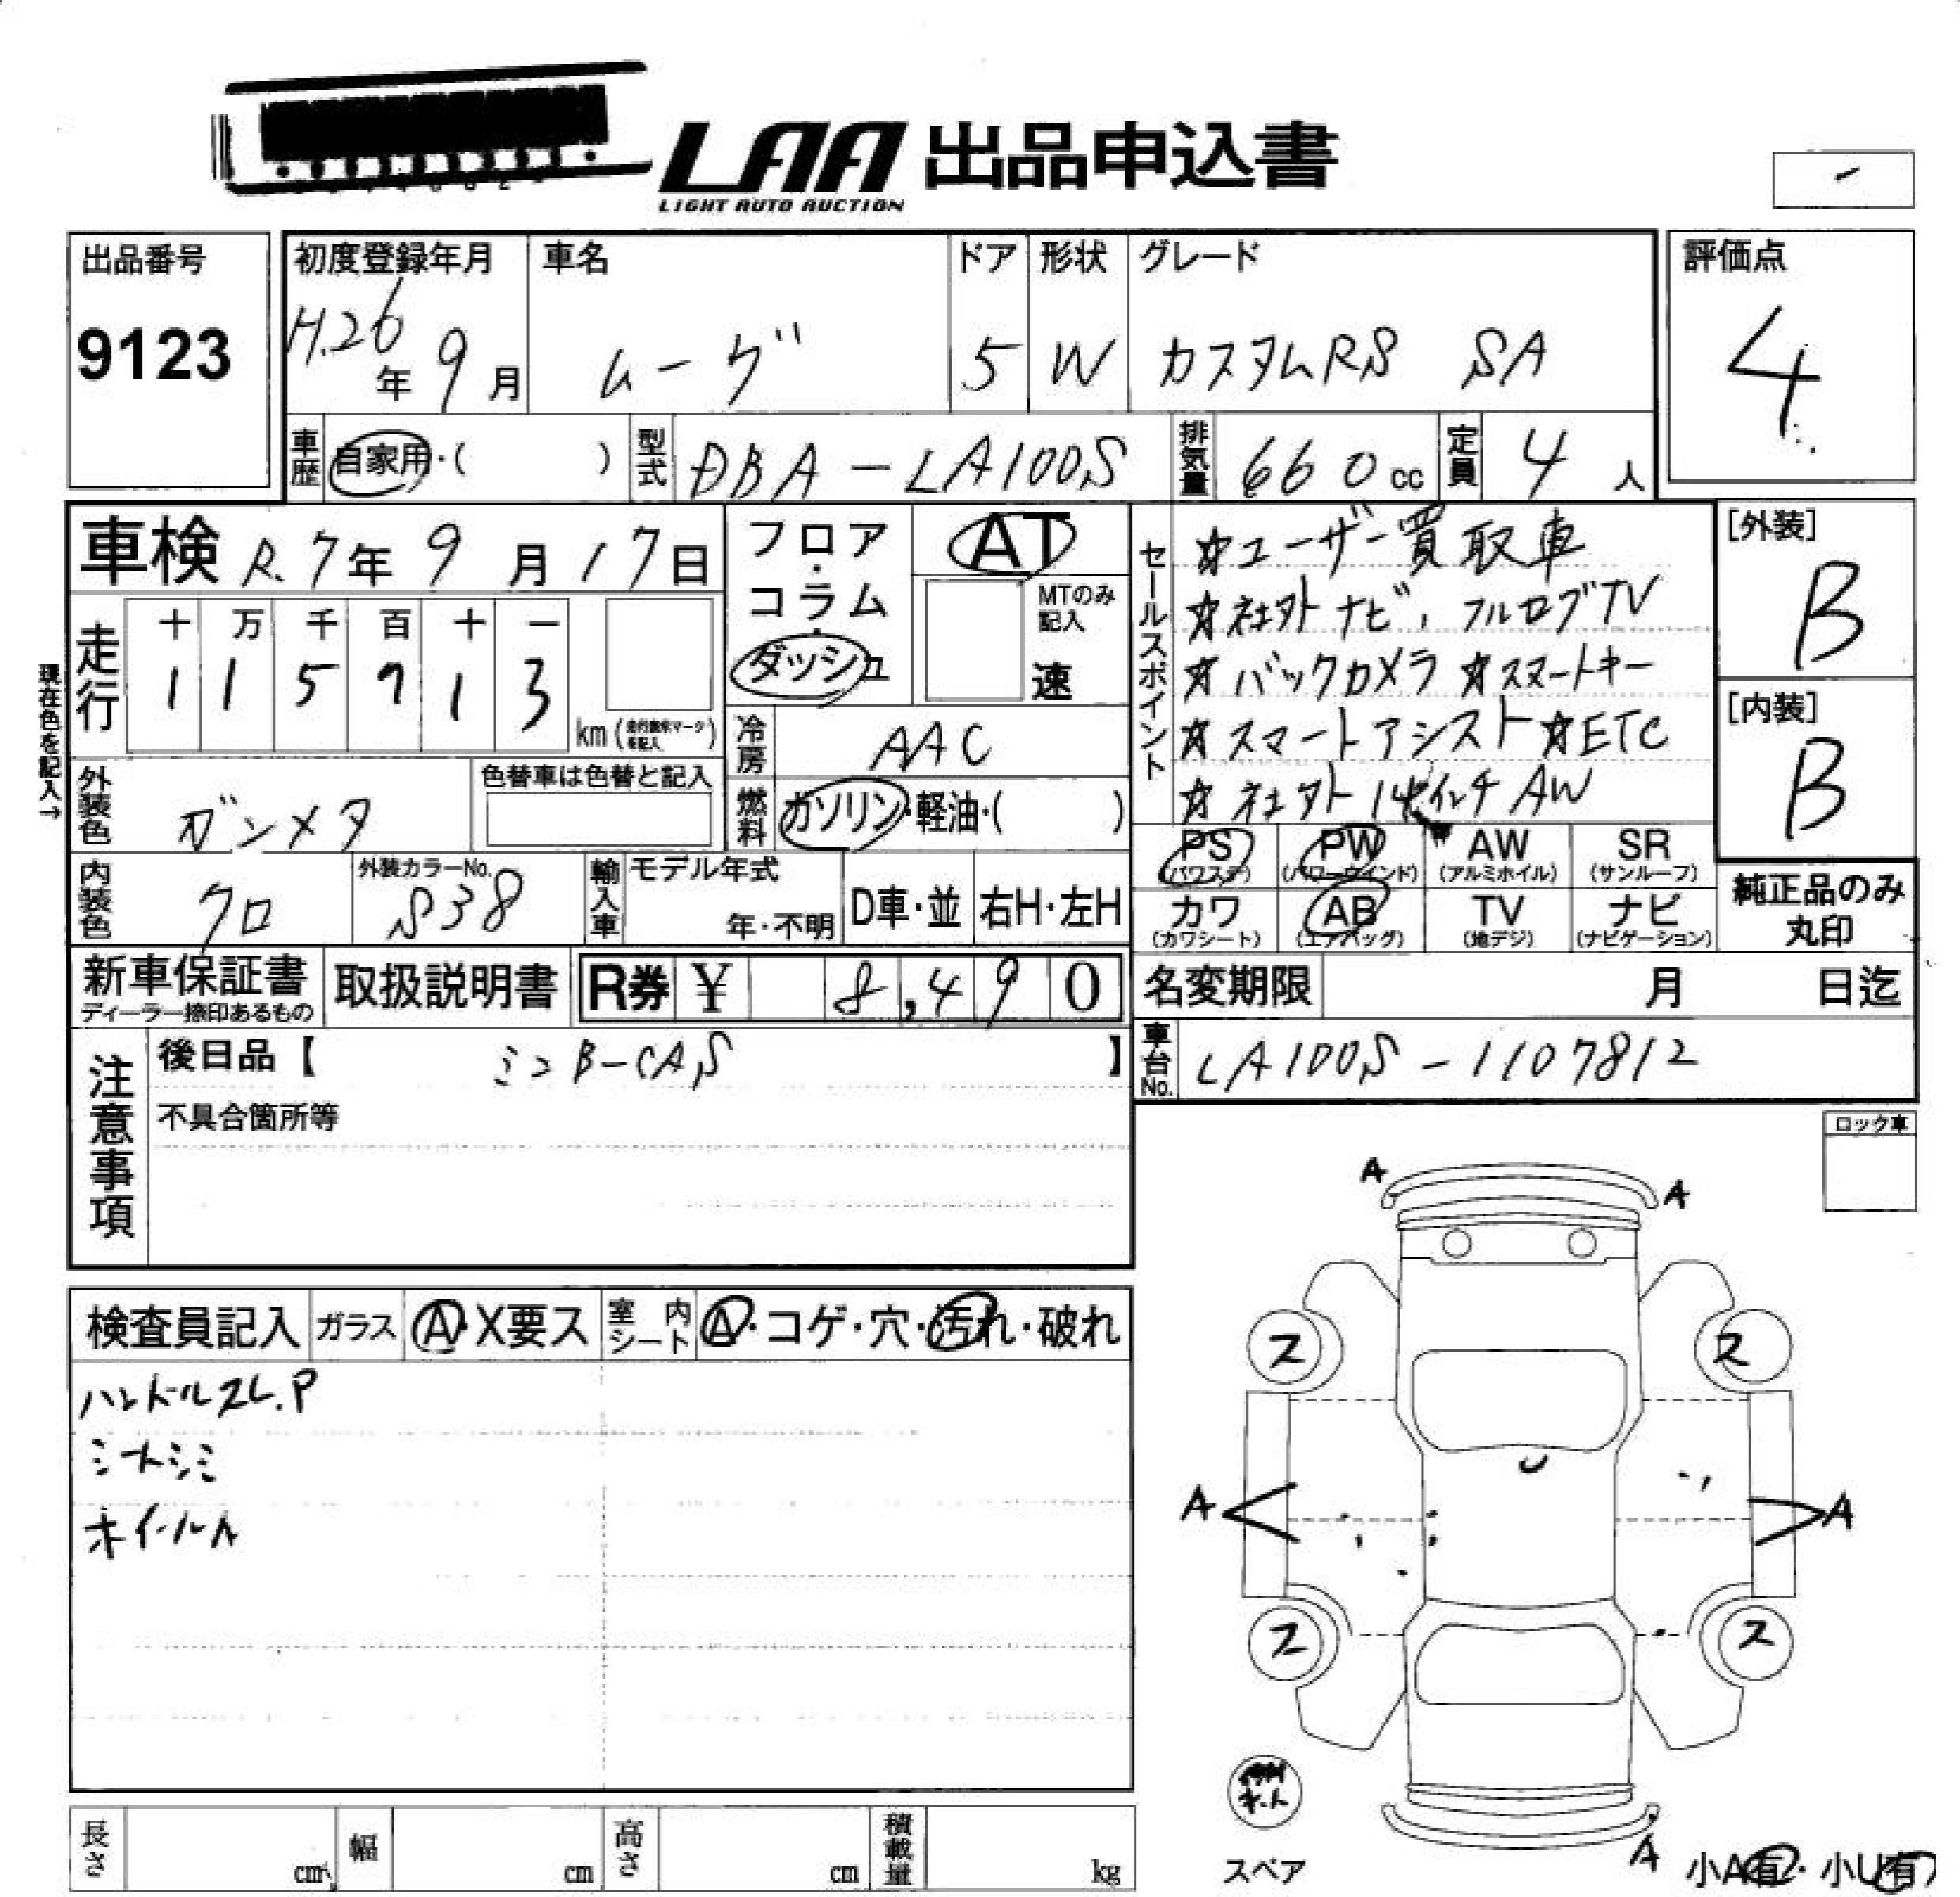 LAA 出品申込書
LIGHT AUTO AUCTION
出品番号
9123
初度登録年月
H.26年 9月
車名
ムーヴ
ドア
5
形状
W
グレード
カスタムRS SA
評価点
4
車歴 自家用・( )
型式 DBA-LA100S
排気量 660cc
定員 4人
車検 R.7年 9月 17日
走行
十 万 千 百 十 一
1 1 5 9 1 3
km(走行無来マーク を記入)
現在色を記入→
外装色 ガンメタ
色替車は色替と記入
内装色 クロ
外装カラーNo. S38
輸入車
モデル年式
年・不明
D車・並
右H・左H
フロア・コラム・ダッシュ
AT
MTのみ記入
速
冷房 AAC
燃料 ガソリン・軽油・( )
セールスポイント
☆ユーザー買取車
☆社外ナビ、フルセグTV
☆バックカメラ ☆スマートキー
☆スマートアシスト ☆ETC
☆社外14インチAW
[外装]
B
[内装]
B
PS (パワステ)
PW (パワーウインド)
AW (アルミホイル)
SR (サンルーフ)
カワ (カワシート)
AB (エアバッグ)
TV (地デジ)
ナビ (ナビゲーション)
純正品のみ
丸印
新車保証書
ディーラー捺印あるもの
取扱説明書
R券 ¥ 8,490
名変期限 月 日迄
車台No. LA100S-1107812
注意事項
後日品【 ミニB-CAS 】
不具合箇所等
ロック車
検査員記入
ガラス A・X要ス
室内シート A・コゲ・穴・汚れ・破れ
ハンドルスレ.P
シートシミ
ホイールA
A
A
ス
ス
A
A
ス
ス
キット
スペア
A
小A有・小U有
長さ cm
幅 cm
高さ cm
積載量 kg